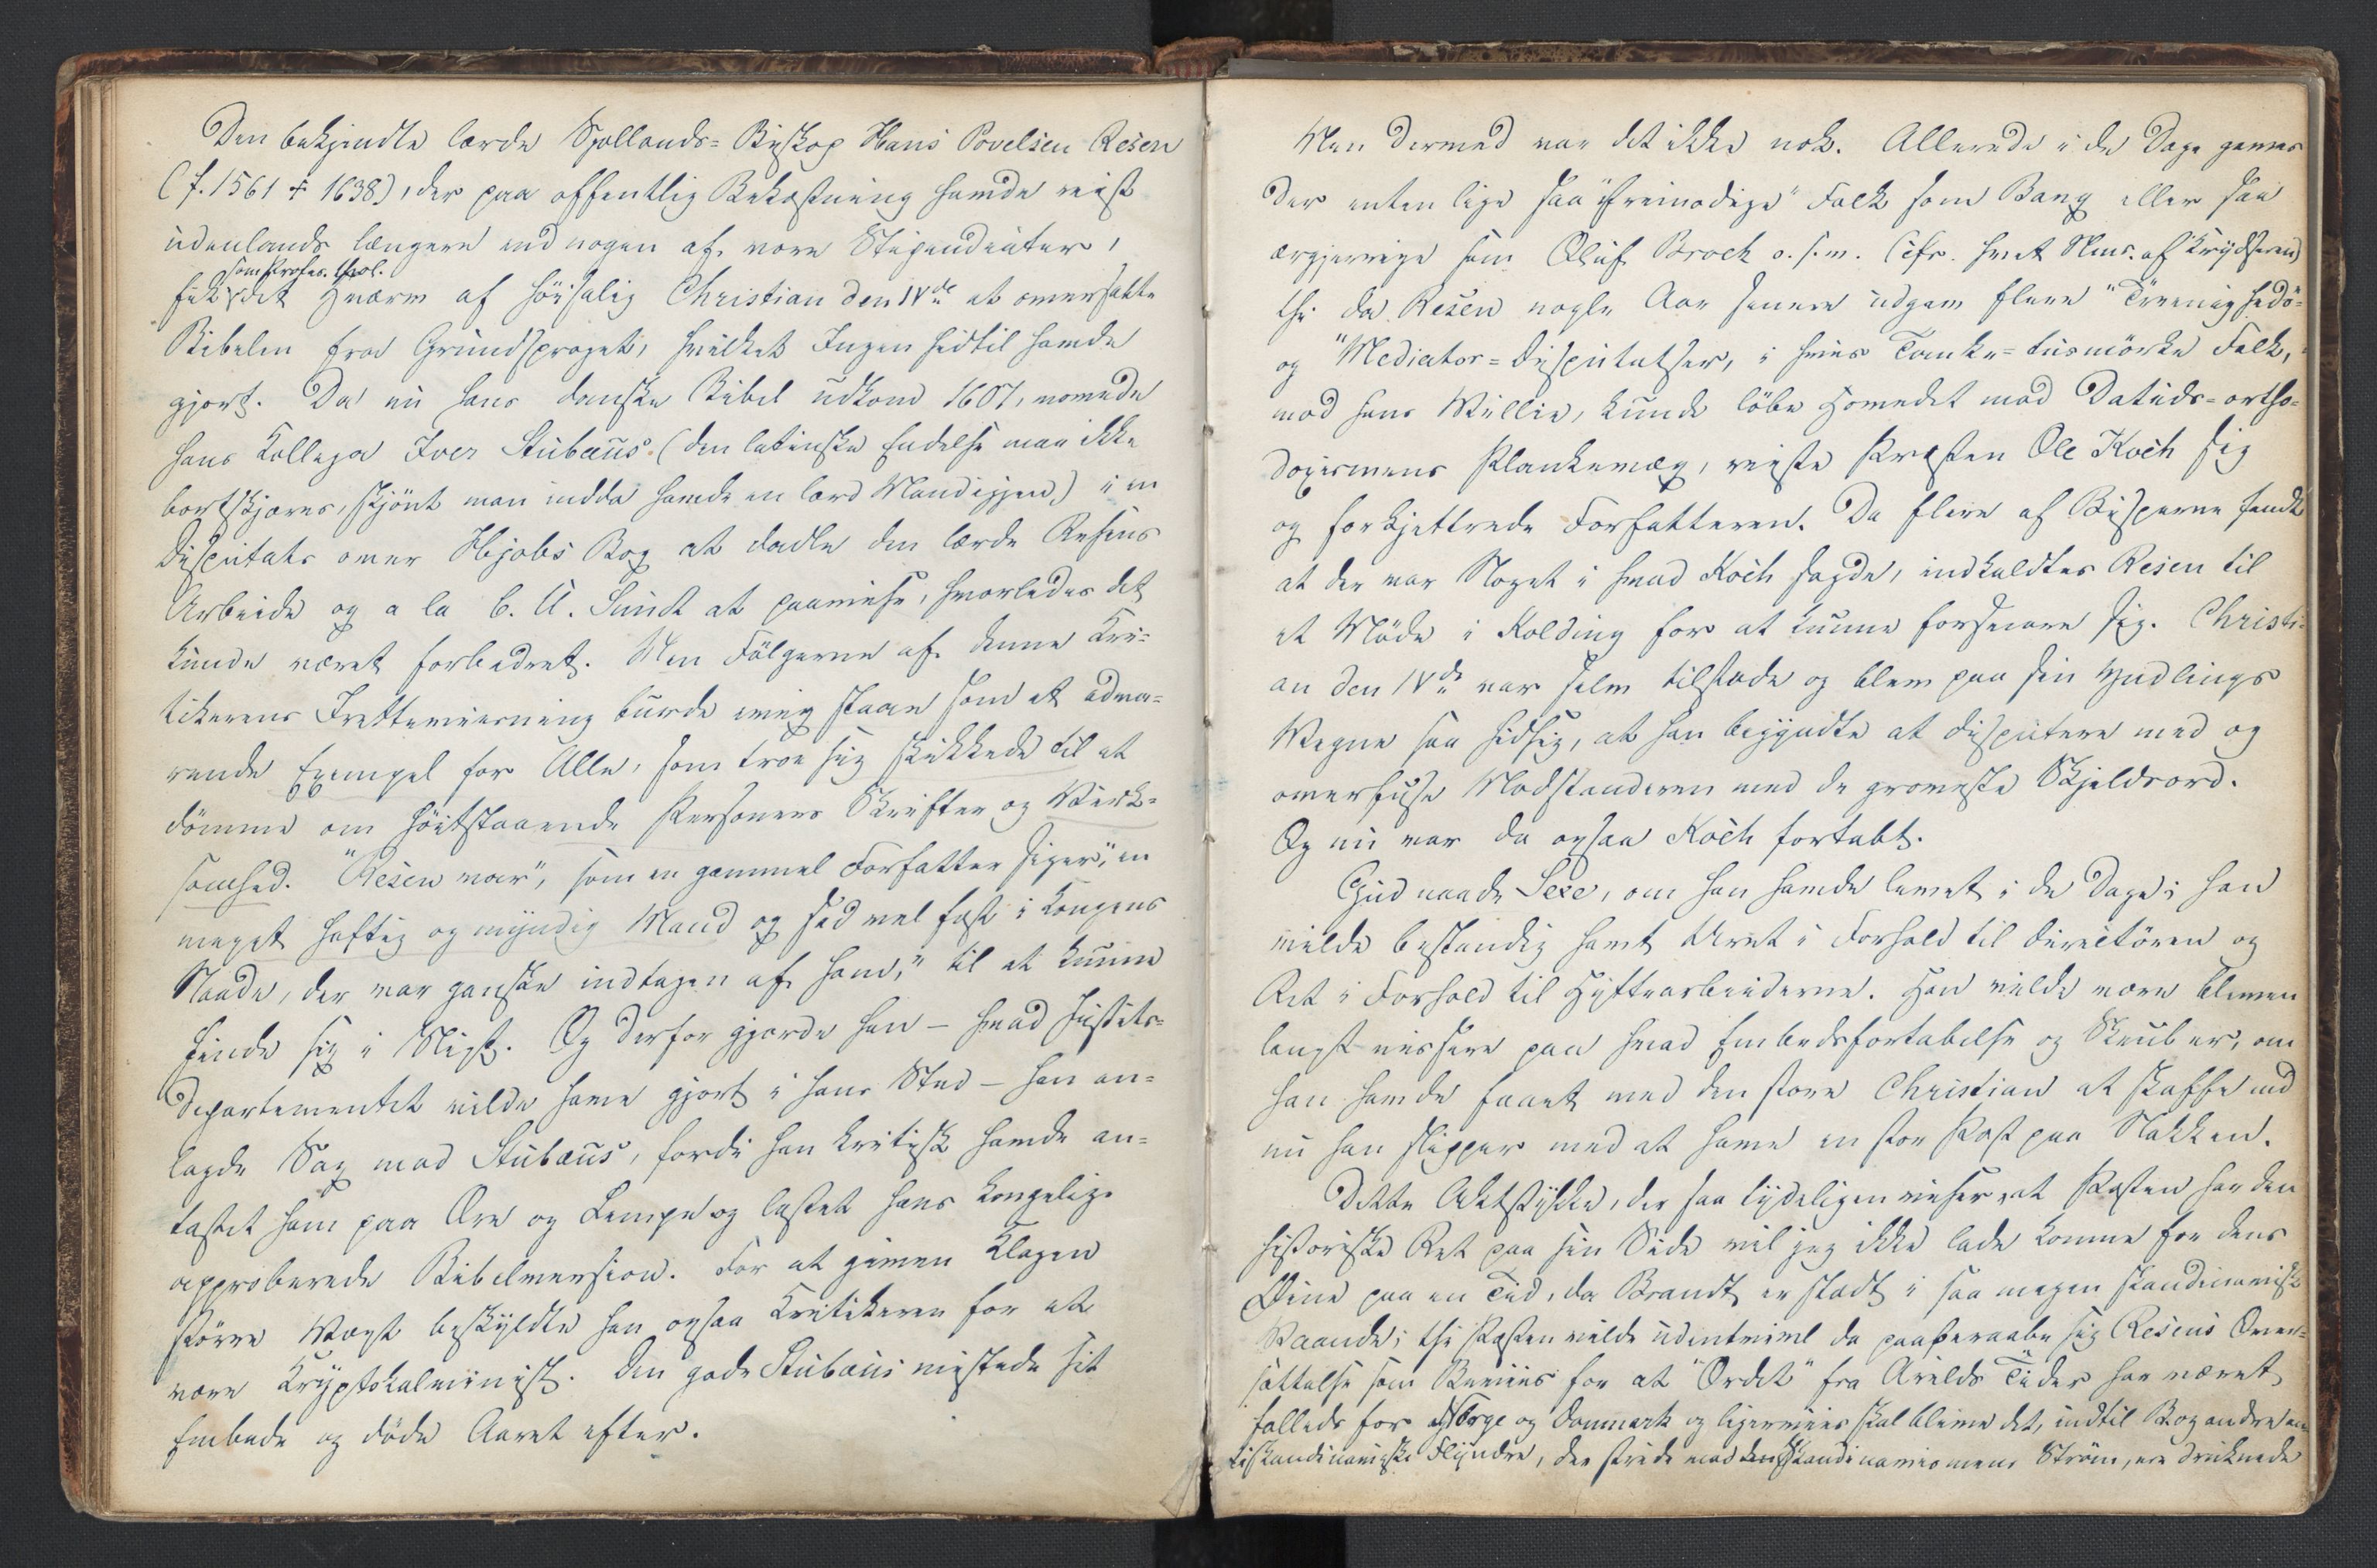 Den bekjendte lærde Sjællands-Biskop Hans Povelsen Resen
(f. 1561 † 1638), der paa offentlig Bekostning havde reist
udenlands længere end nogen af vore Stipendiater,
som Profes. theol.
fik det Hværv af høisalig Christian den IVde at oversætte
Bibelen fra Grundsproget, hvilket Ingen hidtil havde
gjort. Da nu hans danske Bibel udkom 1607, vovede
hans Kollega Iver Stubæus (den latinske Endelse maa ikke
bortskjæres, skjönt man endda havde en lærd Mand igjen) i en
Disputats over Hjobs Bog at dadle den lærde Resens
Arbeide og a la C. A. Sundt at paavise, hvorledes det
kunde været forbedret. Men Fölgerne af denne Kri-
tikerens Irettevisning burde evig staae som et adva-
rende Exempel for Alle, som troe sig skikkede til at
dömme om höitstaaende Personers Skrifter og Virk-
somhed. "Resen var", som en gammel Forfatter siger, "en
meget heftig og myndig Mand og sad vel fast i Kongens
Naade, der var ganske indtagen af ham," til at kunne
finde sig i Sligt. Og derfor gjorde han – hvad Justits-
departementet vilde have gjort i hans Sted – han an-
lagde Sag mod Stubæus, fordi han kritisk havde an-
tastet ham paa Ære og Lempe og lastet hans kongelig
approberede Bibelversion. For at given Klagen
större Vægt beskyldte han ogsaa Kritikeren for at
være Kryptokalvinist. Den gode Stubæus mistede sit
Embede og döde Aaret efter.
Men dermed var det ikke nok. Allerede i de Dage gaves
der enten lige saa "frimodige" Folk som Bang eller saa
ærgjerrige som Oluf Broch o.s.v. (cfr. hvet Skus. af Krydseren)
thi da Resen nogle Aar senere udgav flere "Treenigheds-
og "Mediator-Disputatser, i hvis Tanke-tusmörke Folk,
mod hans Villie, kunde löbe Hovedet mod Datids-ortho-
doxismens Plankevæg, reiste Præsten Ole Koch sig
og forkjettrede Forfatteren. Da flere af Bisperne fandt
at der var Noget i hvad Koch sagde, indkaldtes Resen til
et Möde i Kolding for at kunne forsvare sig. Christi-
an den IVde var selv tilstede og blev paa sin Yndlings
Vegne saa hidsig, at han begyndte at disputere med og
overfuse Modstanderen med de groveste Skjeldsord.
Og nu var da ogsaa Koch fortabt.
Gud naade Sexe, om han havde levet i de Dage; han
vilde bestandig havt Uret i Forhold til Directören og
Ret i Forhold til Hytterarbeiderne. Han vilde være bleven
langt vissere paa hvad Embedsfortabelse og Skrub er, om
han havde faaet med den store Christian at skaffe end
nu han slipper med at have en stor Post paa Nakken.
Dette Aktstykke, der saa tydeligen viser, at Posten har den
historiske Ret paa sin Side vil jeg ikke lade komme for dens
Öine paa en Tid, da Brandt er stedt i saa megen skandinavisk
Vaande; thi Posten vilde udentvivl da paaberaabe sig Resens Over-
sættelse som Beviis for at "Ordet" fra Arilds Tider har været
fælleds for Norge og Danmark og ligerviis skal blive det, indtil Bog andre an-
tiskandinaviske Flyndre, der stride mod Skandinavismens Ström, ere druknede